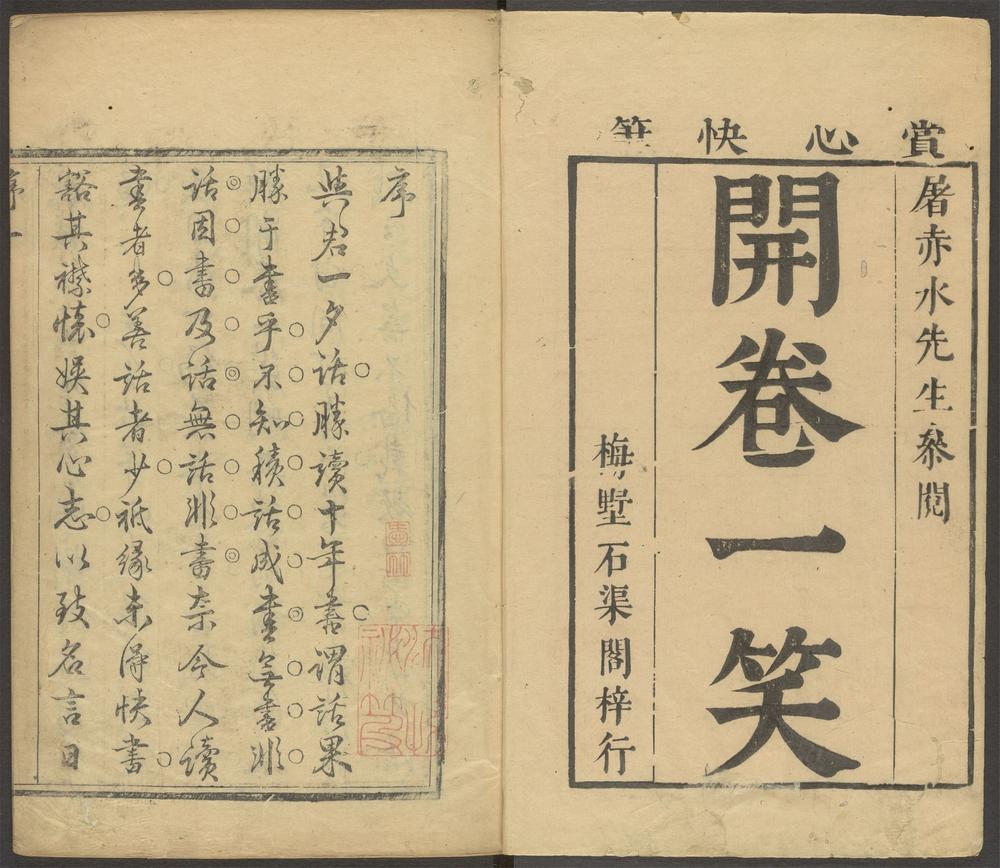 賞心快筆
屠赤水先生叅閱
開卷一笑
梅墅石渠閣梓行
序
與君一夕話勝讀十年書謂話果
勝于書乎不知積話成書無書非
話因書及話無話非書奈今人讀
書者多善話者少祗緣未得快書
豁其襟懷娛其心志以致名言日
序 一